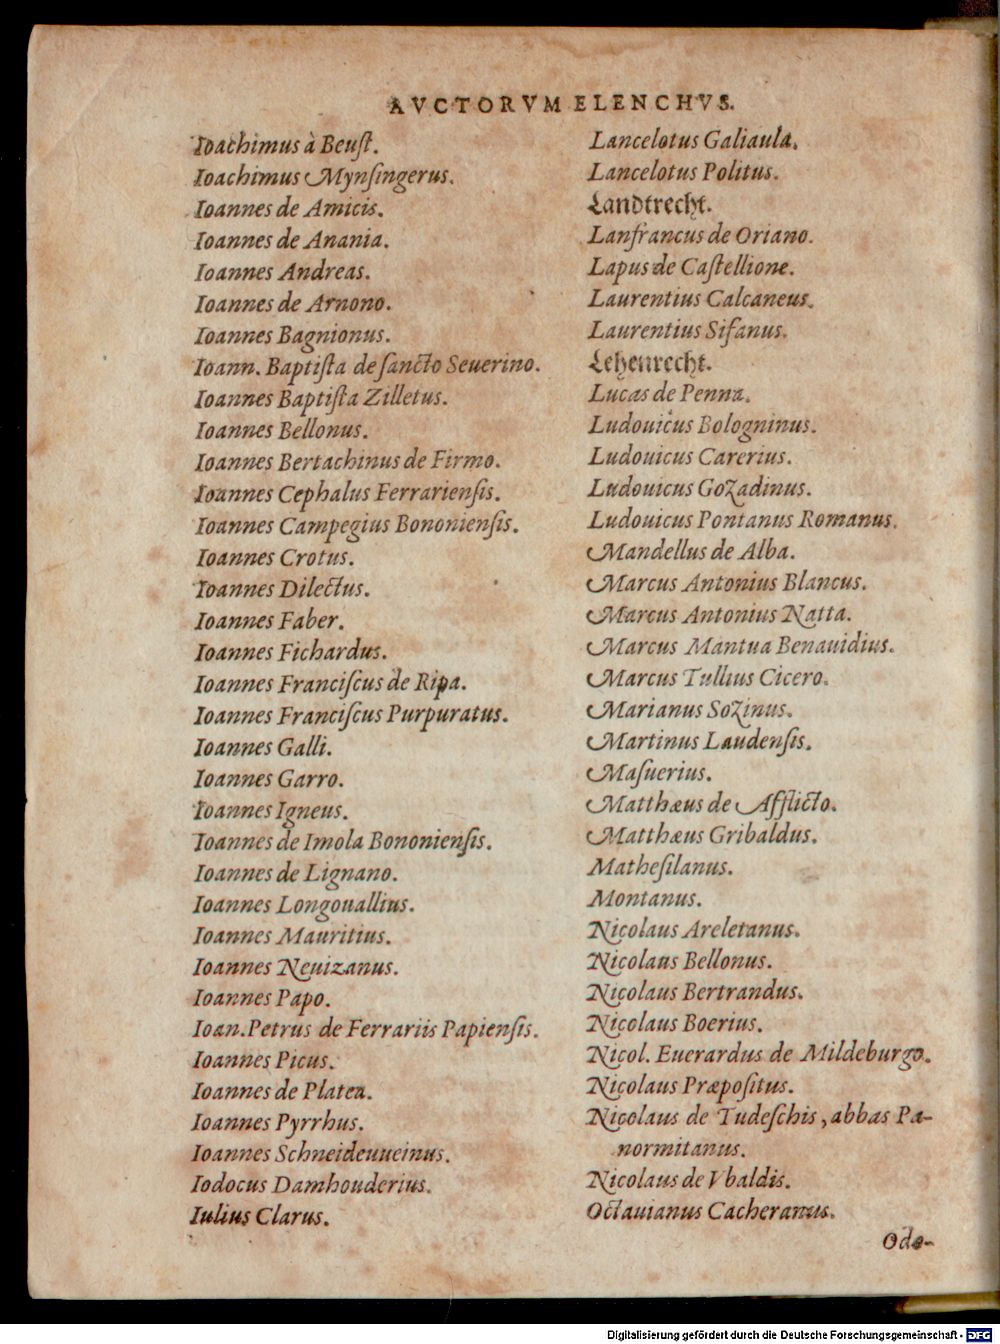 AVCTORVM ELENCHVS.
Ioachimus à Beuſt.
Ioachimus Mynſingerus.
Ioannes de Amicis.
Ioannes de Anania.
Ioannes Andreas.
Ioannes de Arnono.
Ioannes Bagnionus.
Ioann. Baptiſta de ſancto Seuerino.
Ioannes Baptiſta Zilletus.
Ioannes Bellonus.
Ioannes Bertachinus de Firmo.
Ioannes Cephalus Ferrarienſis.
Ioannes Campegius Bononienſis.
Ioannes Crotus.
Ioannes Dilectus.
Ioannes Faber.
Ioannes Fichardus.
Ioannes Franciſcus de Ripa.
Ioannes Franciſcus Purpuratus.
Ioannes Galli.
Ioannes Garro.
Ioannes Igneus.
Ioannes de Imola Bononienſis.
Ioannes de Lignano.
Ioannes Longouallius.
Ioannes Mauritius.
Ioannes Neuizanus.
Ioannes Papo.
Ioan. Petrus de Ferrariis Papienſis.
Ioannes Picus.
Ioannes de Platea.
Ioannes Pyrrhus.
Ioannes Schneideuueinus.
Iodocus Damhouderius.
Iulius Clarus.
Lancelotus Galiaula.
Lancelotus Politus.
Landtrecht.
Lanfrancus de Oriano.
Lapus de Caſtellione.
Laurentius Calcaneus.
Laurentius Sifanus.
Lehenrecht.
Lucas de Penna.
Ludouicus Bologninus.
Ludouicus Carerius.
Ludouicus Gozadinus.
Ludouicus Pontanus Romanus.
Mandellus de Alba.
Marcus Antonius Blancus.
Marcus Antonius Natta.
Marcus Mantua Benauidius.
Marcus Tullius Cicero.
Marianus Sozinus.
Martinus Laudenſis.
Maſuerius.
Matthæus de Afflicto.
Matthæus Gribaldus.
Matheſilanus.
Montanus.
Nicolaus Areletanus.
Nicolaus Bellonus.
Nicolaus Bertrandus.
Nicolaus Boerius.
Nicol. Euerardus de Mildeburgo.
Nicolaus Præpoſitus.
Nicolaus de Tudeſchis, abbas Pa-
normitanus.
Nicolaus de Vbaldis.
Octauianus Cacheranus.
Odo-
Digitalisierung gefördert durch die Deutsche Forschungsgemeinschaft - DFG